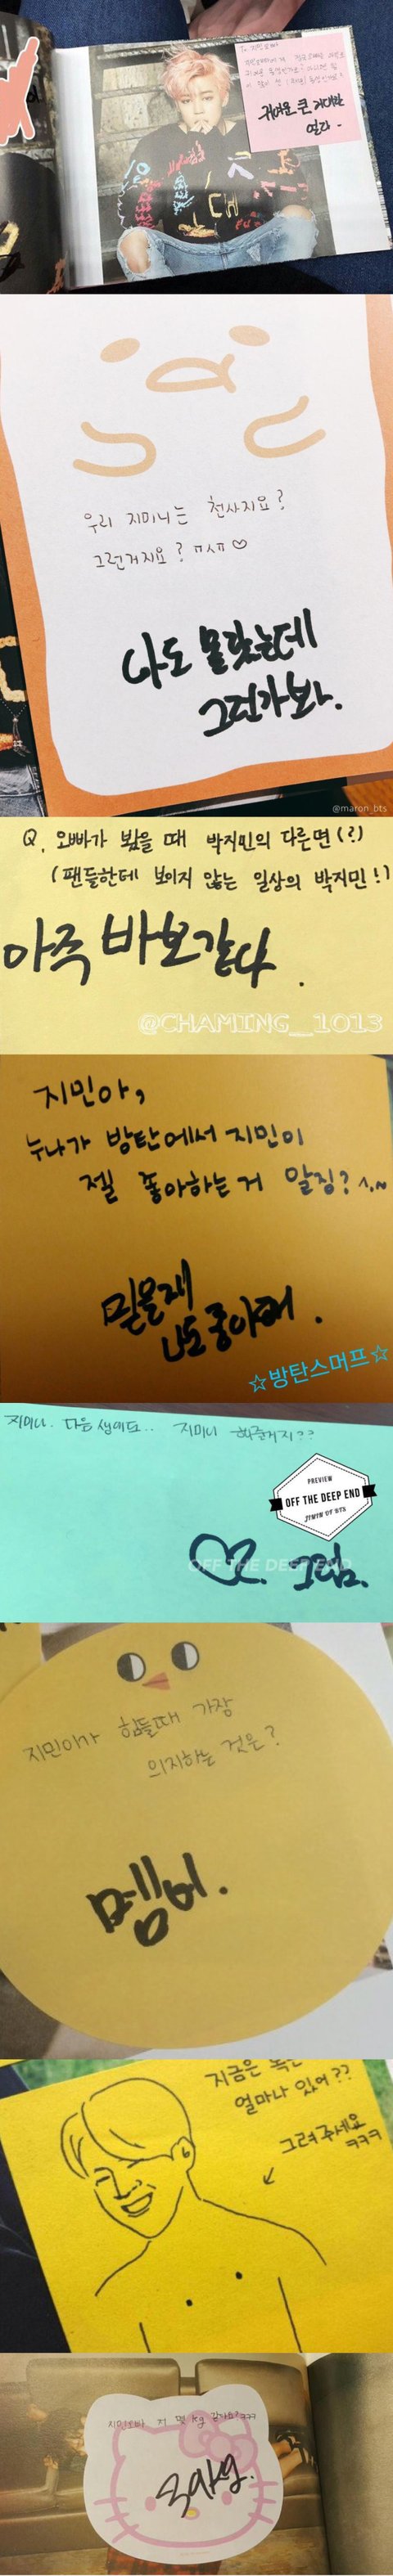 귀여운 큰 거대한
우리 지미니는 천사지요?
그런거지요? ㅠㅅㅠ♡
나도 몰랐는데
그런가봐.
@maron_bts
Q. 오빠가 봤을 때 박지민의 다른면(?)
(팬들한테 보이지 않는 일상의 박지민!)
아주 바보같다.
@CHAMING__1013
지민아,
누나가 방탄에서 지민이
젤 좋아하는거 알징? ^.~
믿을게
나도 좋아해.
☆방탄스머프☆
지미니.
지미니
PREVIEW
OFF THE DEEP END
JIMIN OF BTS
OFF THE DEEP END
그럼.
지민이가 힘들때 가장
의지하는 것은?
멤버.
지금은
얼마나 있어??
그려주세요
ㅋㅋㅋ
지민오빠 저 몇 kg 같아요?ㅋㅋㅋ